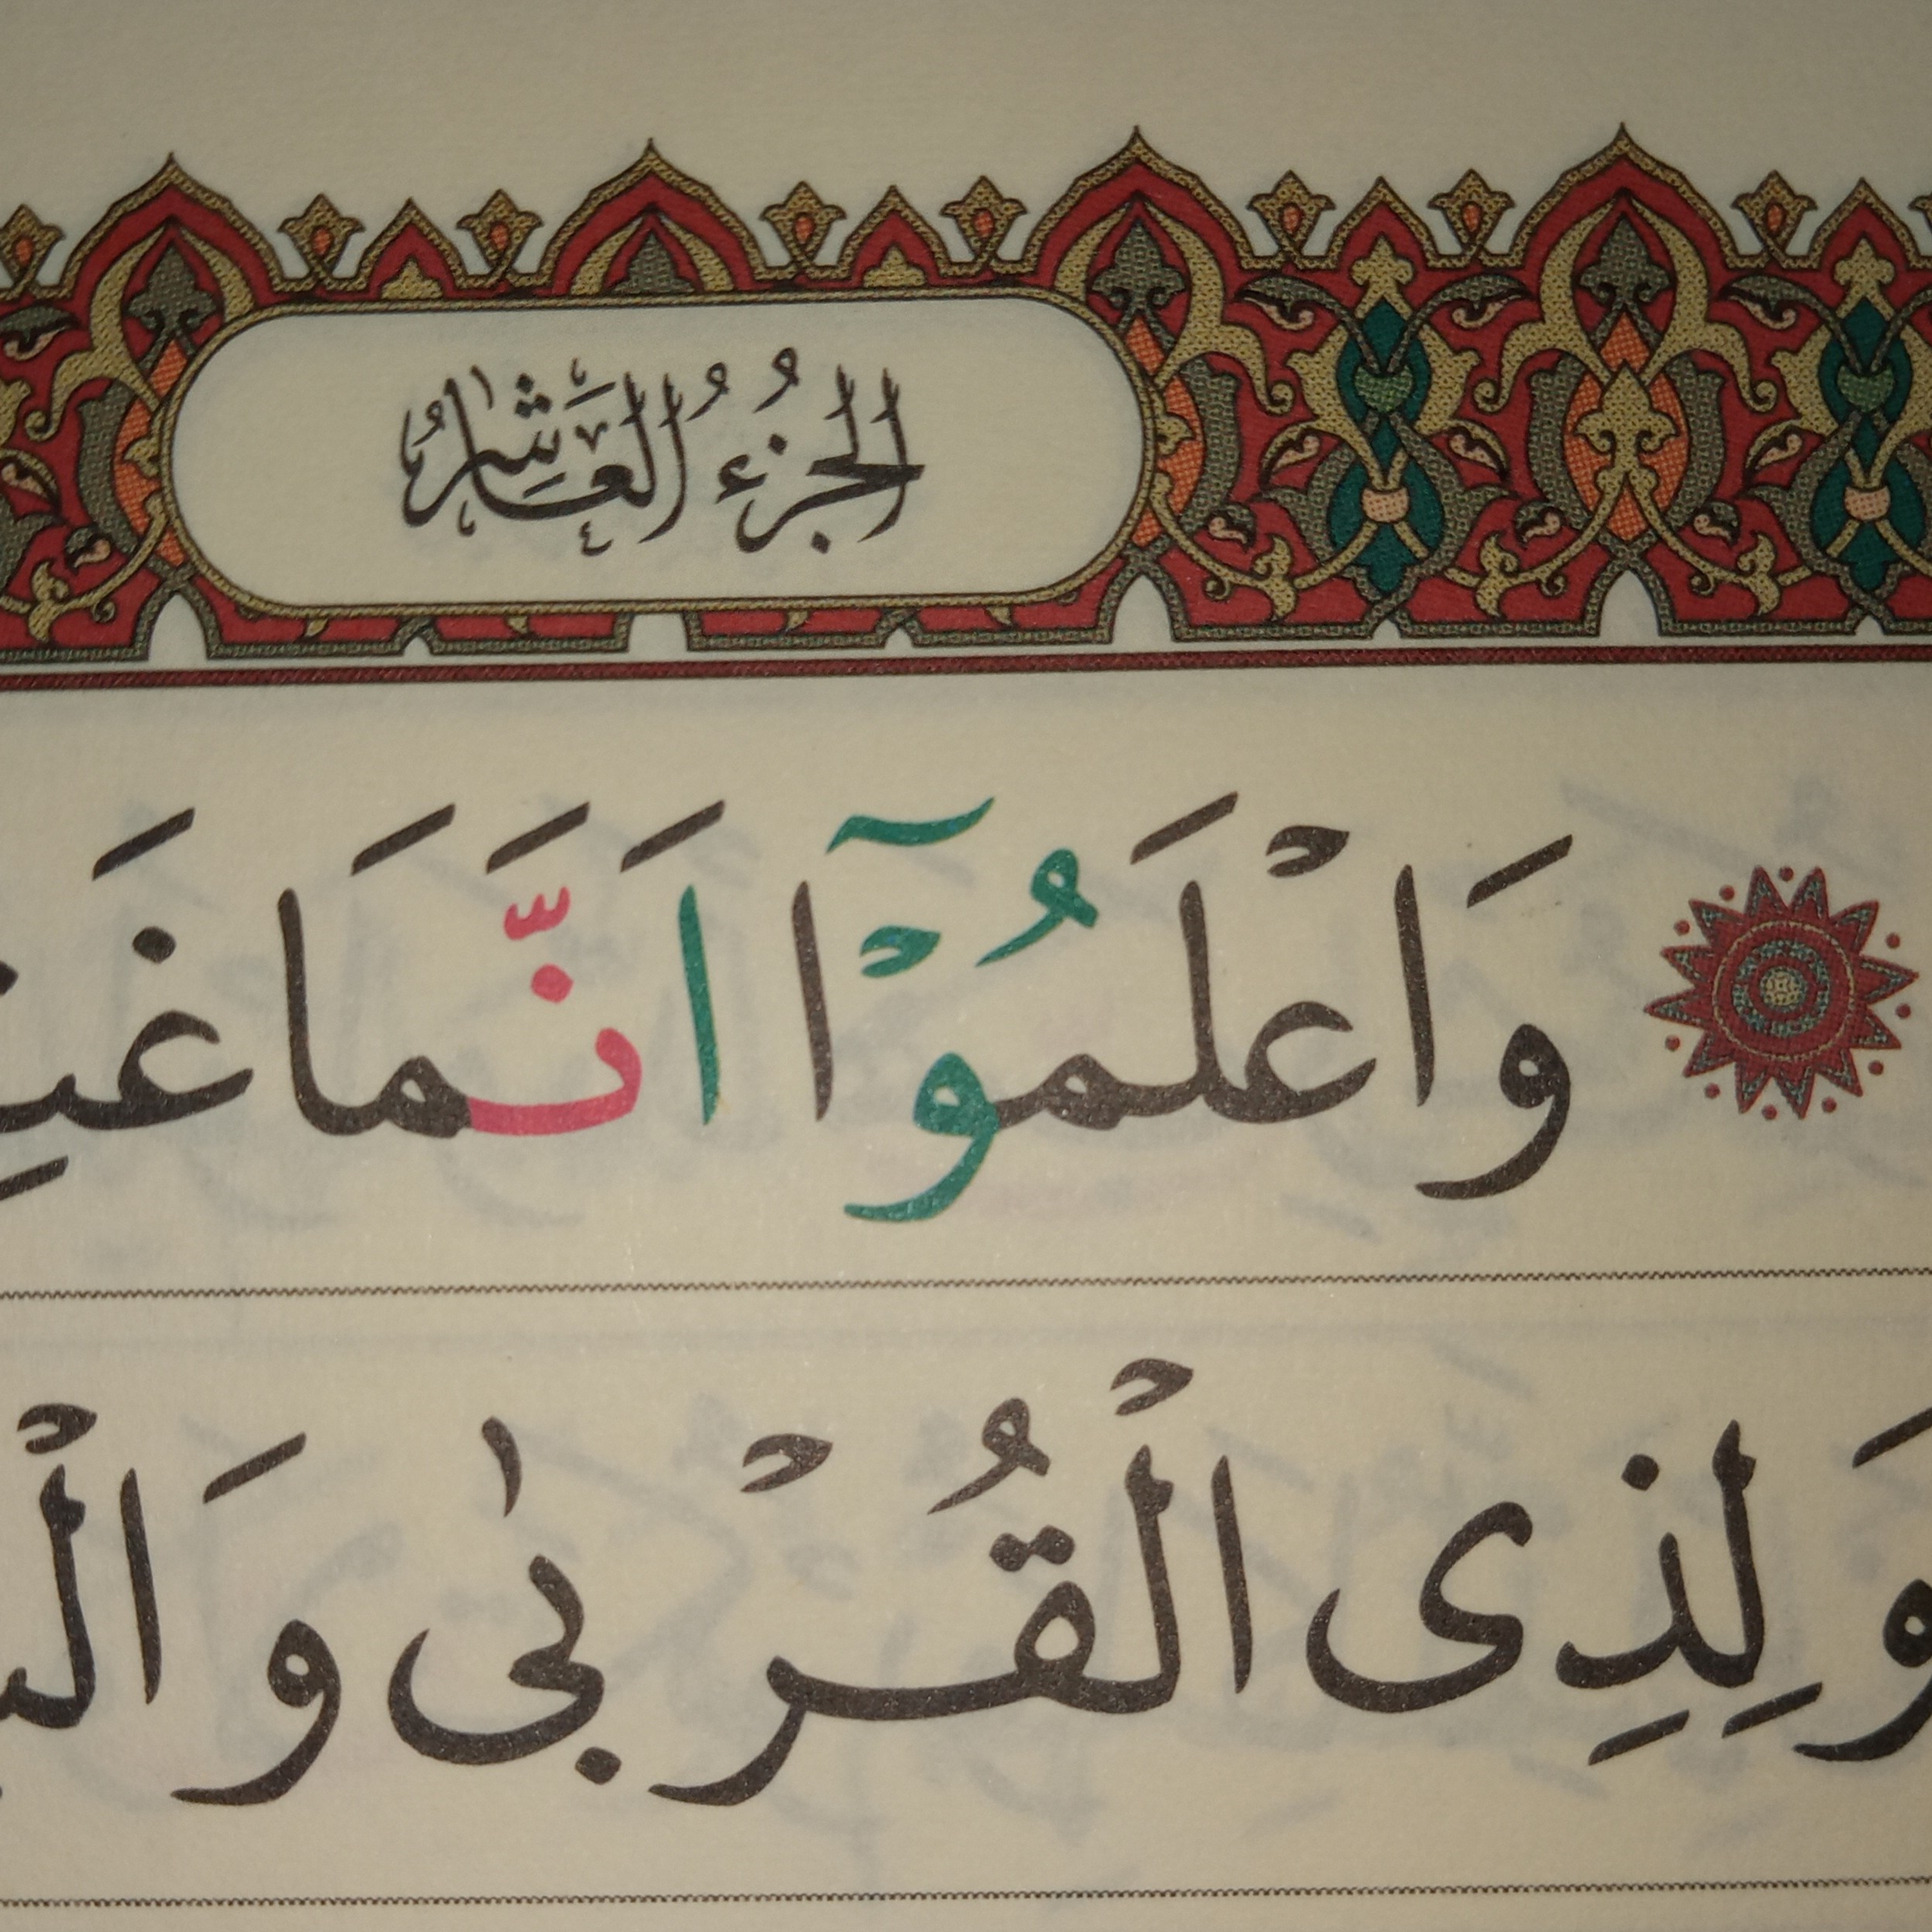 الجُزْءُ العَاشِرُ
وَاعْلَمُوْٓا اَنَّمَا
وَلِذِى الْقُرْبٰى